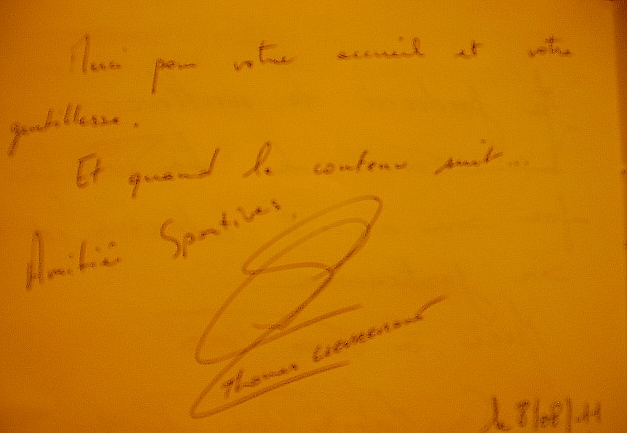 Merci pour votre accueil et votre
gentillesse.
Et quand le conteur suit...
Amitiés Sportives,
Thomas
le 8/08/11